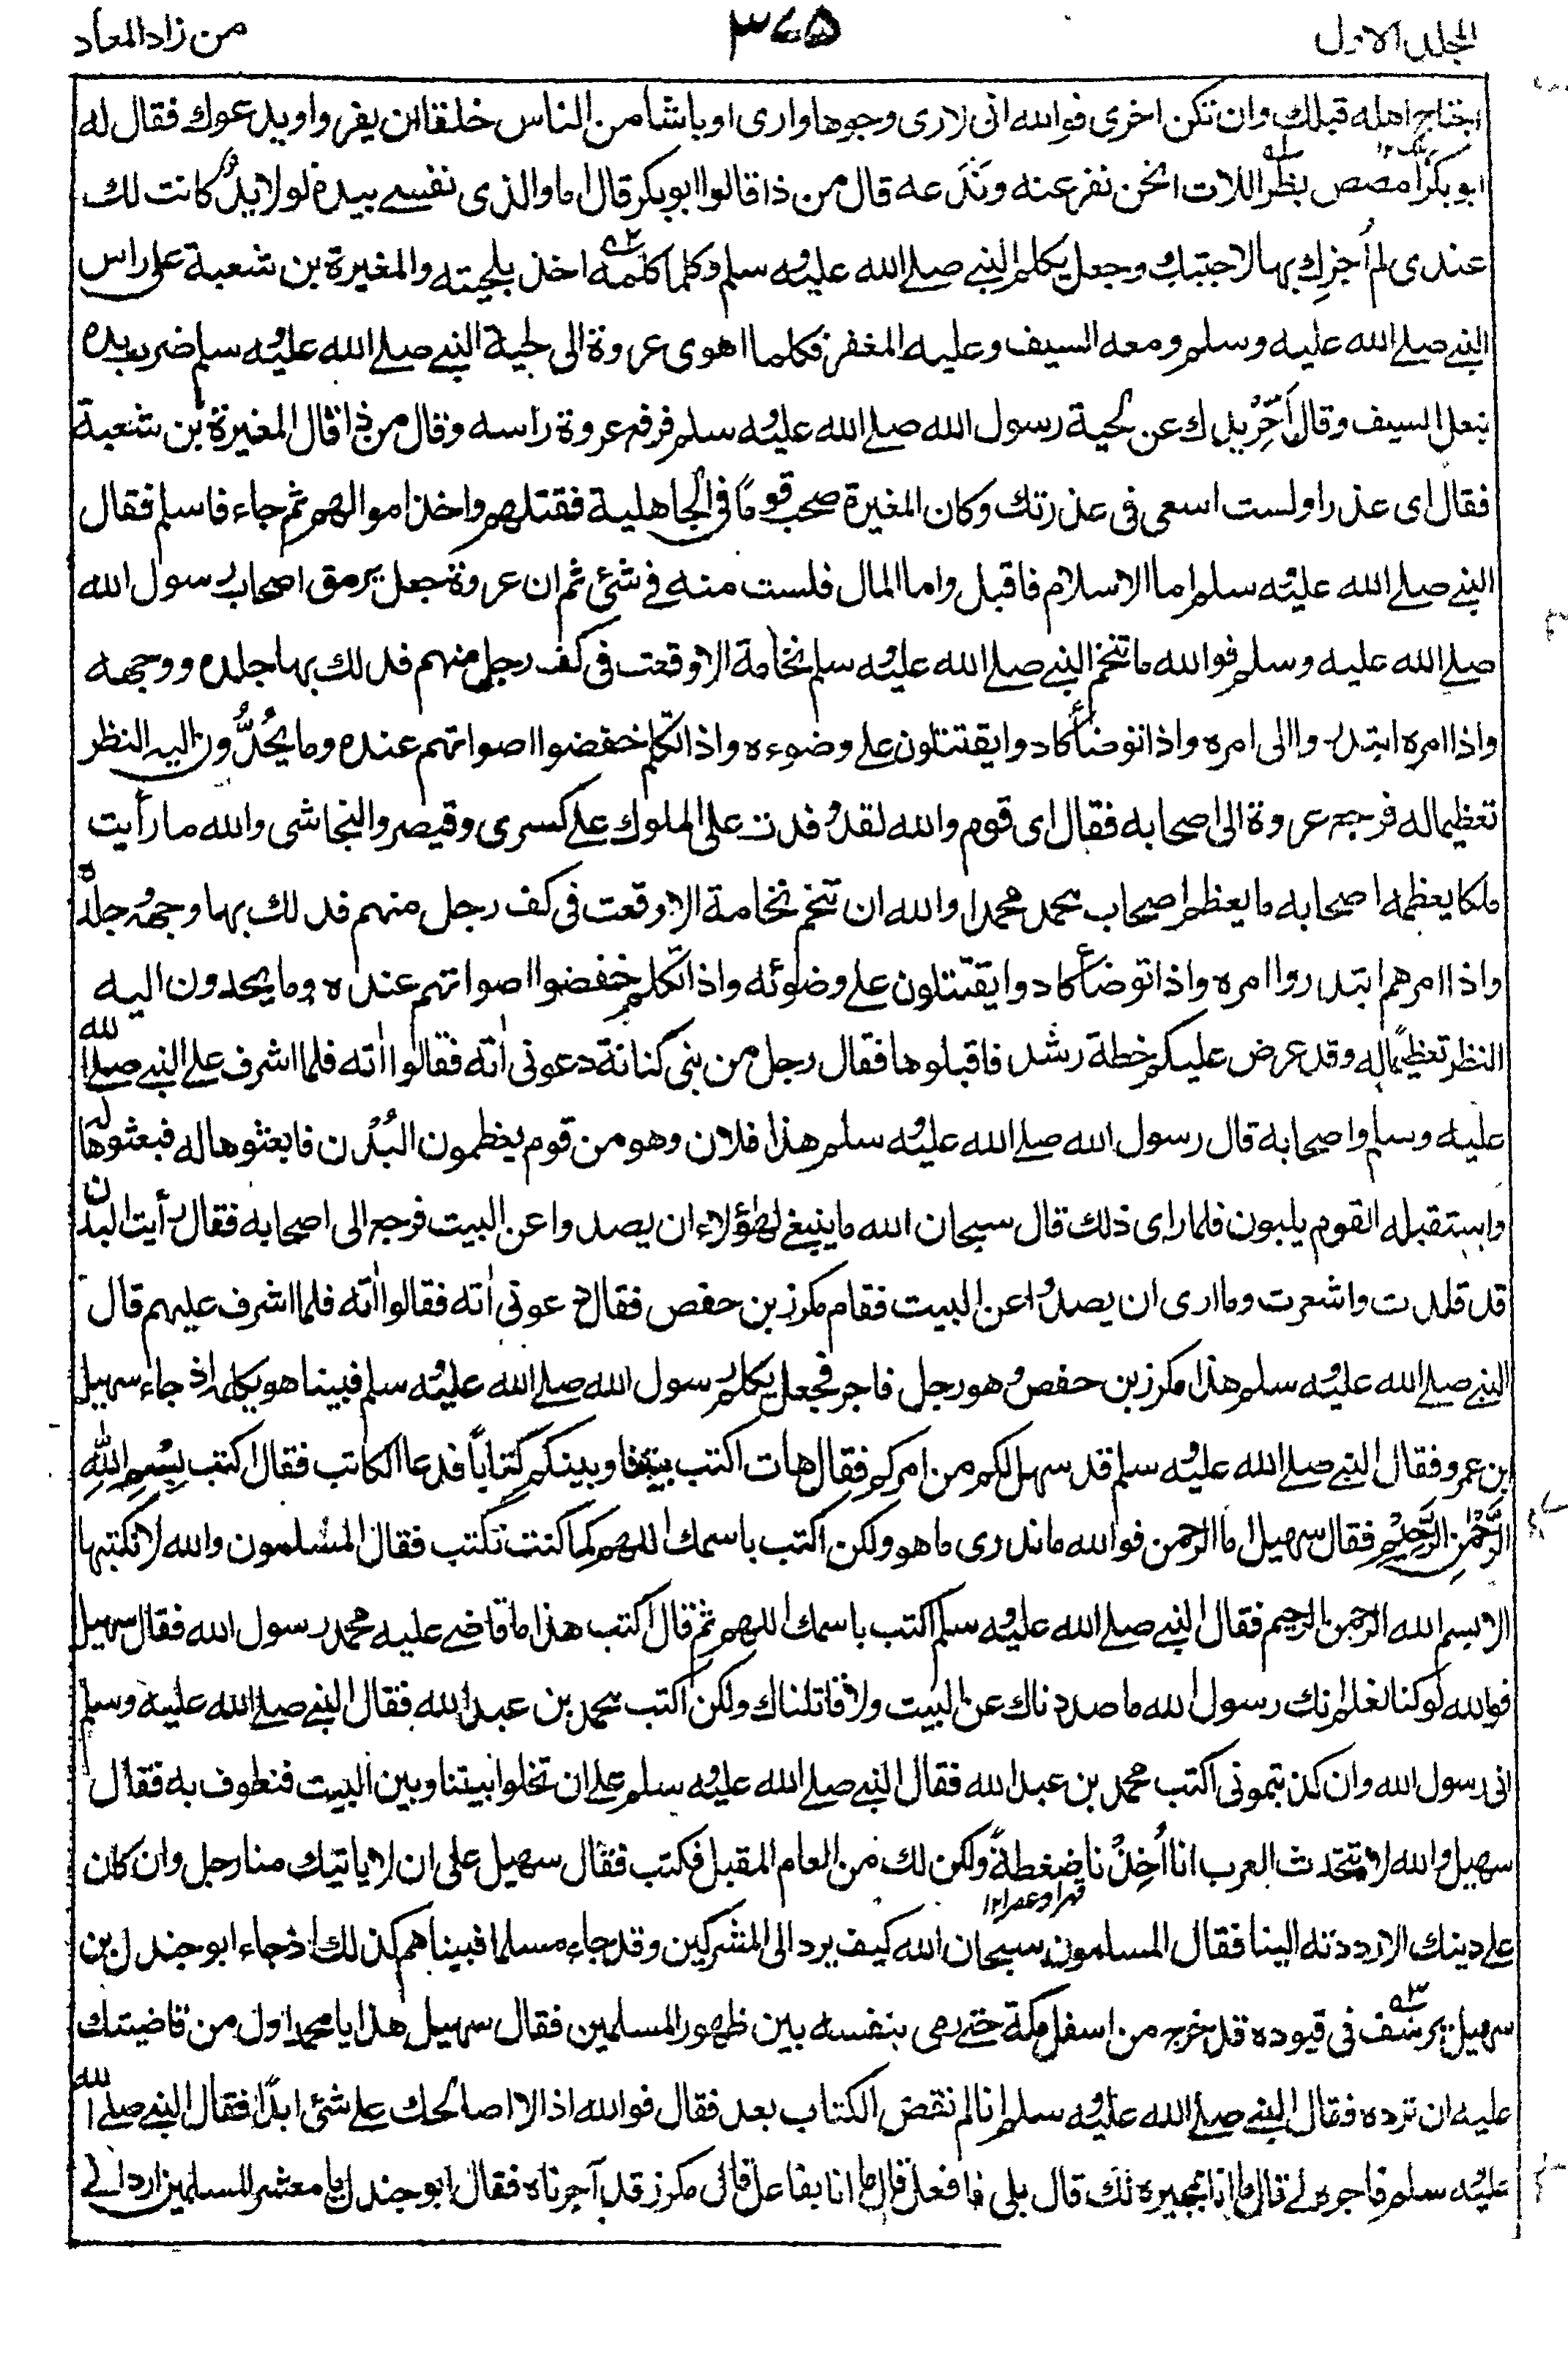 المجلد الاول
٣٧٥
من زاد المعاد
اجتاح اهله قبلك وان تكن اخرى فوالله انى لارى وجوها وارى اوباشا من الناس خلقا ان يفروا ويدعوك فقال له
ابو بكر امصص بظر اللات انحن نفر عنه وندعه قال من ذا قالوا ابو بكر قال اما والذى نفسى بيده لولا يد كانت لك
عندى لم اُجزِك بها لاجبتك وجعل يكلم النبى صلى الله عليه وسلم وكلما كلمه اخذ بلحيته والمغيرة بن شعبة على راس
النبى صلى الله عليه وسلم ومعه السيف وعليه المغفر فكلما اهوى عروة الى لحية النبى صلى الله عليه وسلم ضرب يده
بنعل السيف وقال اَخِّرْ يدك عن لحية رسول الله صلى الله عليه وسلم فرفع عروة راسه وقال من ذا قال المغيرة بن شعبة
فقال اى غدر اولست اسعى فى غدرتك وكان المغيرة صحب قوماً فى الجاهلية فقتلهم واخذ اموالهم ثم جاء فاسلم فقال
النبى صلى الله عليه وسلم اما الاسلام فاقبل واما المال فلست منه فى شئ ثم ان عروة جعل يرمق اصحاب رسول الله
صلى الله عليه وسلم فوالله ما تنخم النبى صلى الله عليه وسلم نخامة الا وقعت فى كف رجل منهم فدلك بها جلده ووجهه
واذا امره ابتدروا الى امره واذا توضأ كادوا يقتتلون على وضوءه واذا تكلم خفضوا اصواتهم عنده وما يُحُدُّون اليه النظر
تعظيما له فرجع عروة الى اصحابه فقال اى قوم والله لقد وفدت على الملوك على كسرى وقيصر والنجاشى والله ما رأيت
ملكا يعظمه اصحابه ما يعظم اصحاب محمد محمدا والله ان تنخم نخامة الا وقعت فى كف رجل منهم فدلك بها وجهه وجلده
واذا امرهم ابتدروا امره واذا توضأ كادوا يقتتلون على وضوئه واذا تكلم خفضوا اصواتهم عنده وما يحدون اليه
النظر تعظيمًا له وقد عرض عليكم خطة رشد فاقبلوها فقال رجل من بنى كنانة دعونى اٰته فقالوا اٰته فلما اشرف على النبى صلى الله
عليه وسلم واصحابه قال رسول الله صلى الله عليه وسلم هذا فلان وهو من قوم يعظمون البُدْن فابعثوها له فبعثوها له
واستقبله القوم يلبون فلما راى ذلك قال سبحان الله ما ينبغى لهؤلاء ان يصدوا عن البيت فرجع الى اصحابه فقال رأيت البدن
قد قلدت واشعرت وما ارى ان يصدوا عن البيت فقام مكرز بن حفص فقال دعونى اٰته فقالوا اٰته فلما اشرف عليهم قال
النبى صلى الله عليه وسلم هذا مكرز بن حفص وهو رجل فاجر فجعل يكلم رسول الله صلى الله عليه وسلم فبينا هو يكلمه اذ جاء سهيل
بن عمرو فقال النبى صلى الله عليه وسلم قد سهل لكم من امركم فقال هات اكتب بيننا وبينكم كتاباً فدعا الكاتب فقال اكتب بِسْمِ اللهِ
الرَّحْمٰنِ الرَّحِيْمِ فقال سهيل اما الرحمن فوالله ما ندرى ما هو ولكن اكتب باسمك اللهم كما كنت تكتب فقال المسلمون والله لا نكتبها
الا بسم الله الرحمن الرحيم فقال النبى صلى الله عليه وسلم اكتب باسمك اللهم ثم قال اكتب هذا ما قاضى عليه محمد رسول الله فقال سهيل
فوالله لو كنا نعلم انك رسول الله ما صددناك عن البيت ولا قاتلناك ولكن اكتب محمد بن عبد الله فقال النبى صلى الله عليه وسلم
انى رسول الله وان كذبتمونى اكتب محمد بن عبد الله فقال النبى صلى الله عليه وسلم على ان تخلوا بيننا وبين البيت فنطوف به فقال
سهيل والله لا تتحدث العرب انا اُخِذْنا ضغطةً ولكن لك من العام المقبل فكتب فقال سهيل على ان لا ياتيك منا رجل وان كان
قهرا وعصرا ١٢
على دينك الا رددته الينا فقال المسلمون سبحان الله كيف يرد الى المشركين وقد جاء مسلما فبينا هم كذلك اذ جاء ابو جندل بن
سهيل يرسف فى قيوده قد خرج من اسفل مكة حتى رمى بنفسه بين ظهور المسلمين فقال سهيل هذا يا محمد اول من قاضيتك
عليه ان ترده فقال النبى صلى الله عليه وسلم انا لم نقض الكتاب بعد فقال فوالله اذا لا اصالحك على شئ ابداً فقال النبى صلى الله
عليه وسلم فاجره لى قال ما انا بمجيره لك قال بلى فافعل قال ما انا بفاعل قال مكرز قد آجرناه فقال ابو جندل يا معشر المسلمين ارد الى